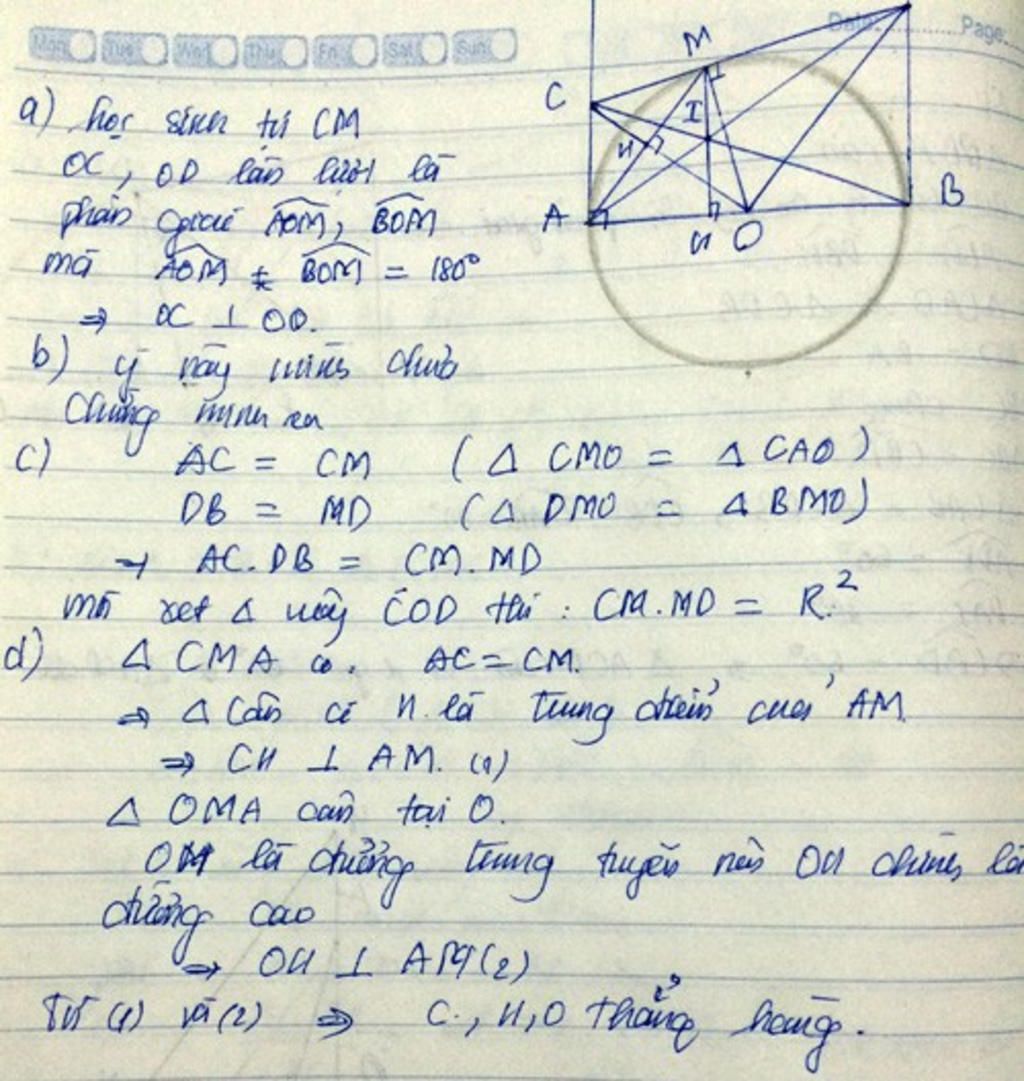 Mon Tue Wed Thu Fri Sat Sun
Date: Page:
C M I H A H O B
a) học sinh tự CM
OC, OD lần lượt là
phân giác AOM, BOM
mà AOM + BOM = 180°
⇒ OC ⊥ OD.
b) ý này mình chưa
chứng minh ra
c) AC = CM (Δ CMO = Δ CAO)
DB = MD (Δ DMO = Δ BMO)
→ AC.DB = CM.MD
mà xét Δ này COD thì: CM.MD = R.²
d) Δ CMA có. AC = CM.
⇒ Δ cân có H là trung điểm của AM.
⇒ CH ⊥ AM. (1)
Δ OMA cân tại O.
OH là đường trung tuyến nên OH chính là
đường cao
⇒ OH ⊥ AM (2)
Từ (1) và (2) ⇒ C, H, O thẳng hàng.